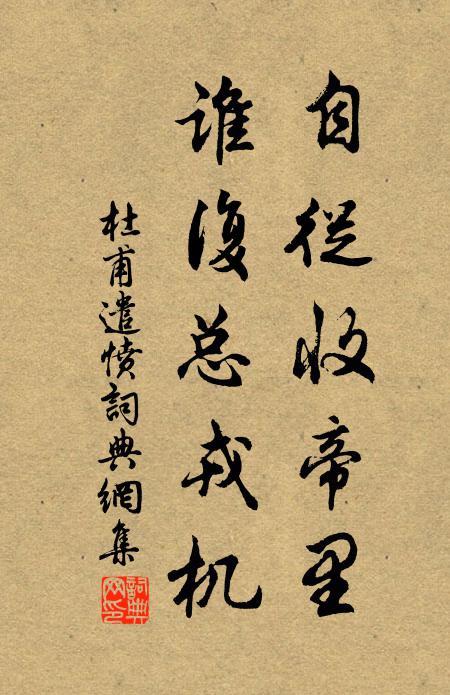 自從收帝里
誰復总戎机
杜甫遣憤詞典網集
詞典网印